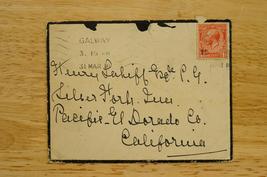 GALWAY
31 MAR
Henry Lahiff Esqr P.G.
Silver Fork Inn
Pacific El Dorado Co.
California